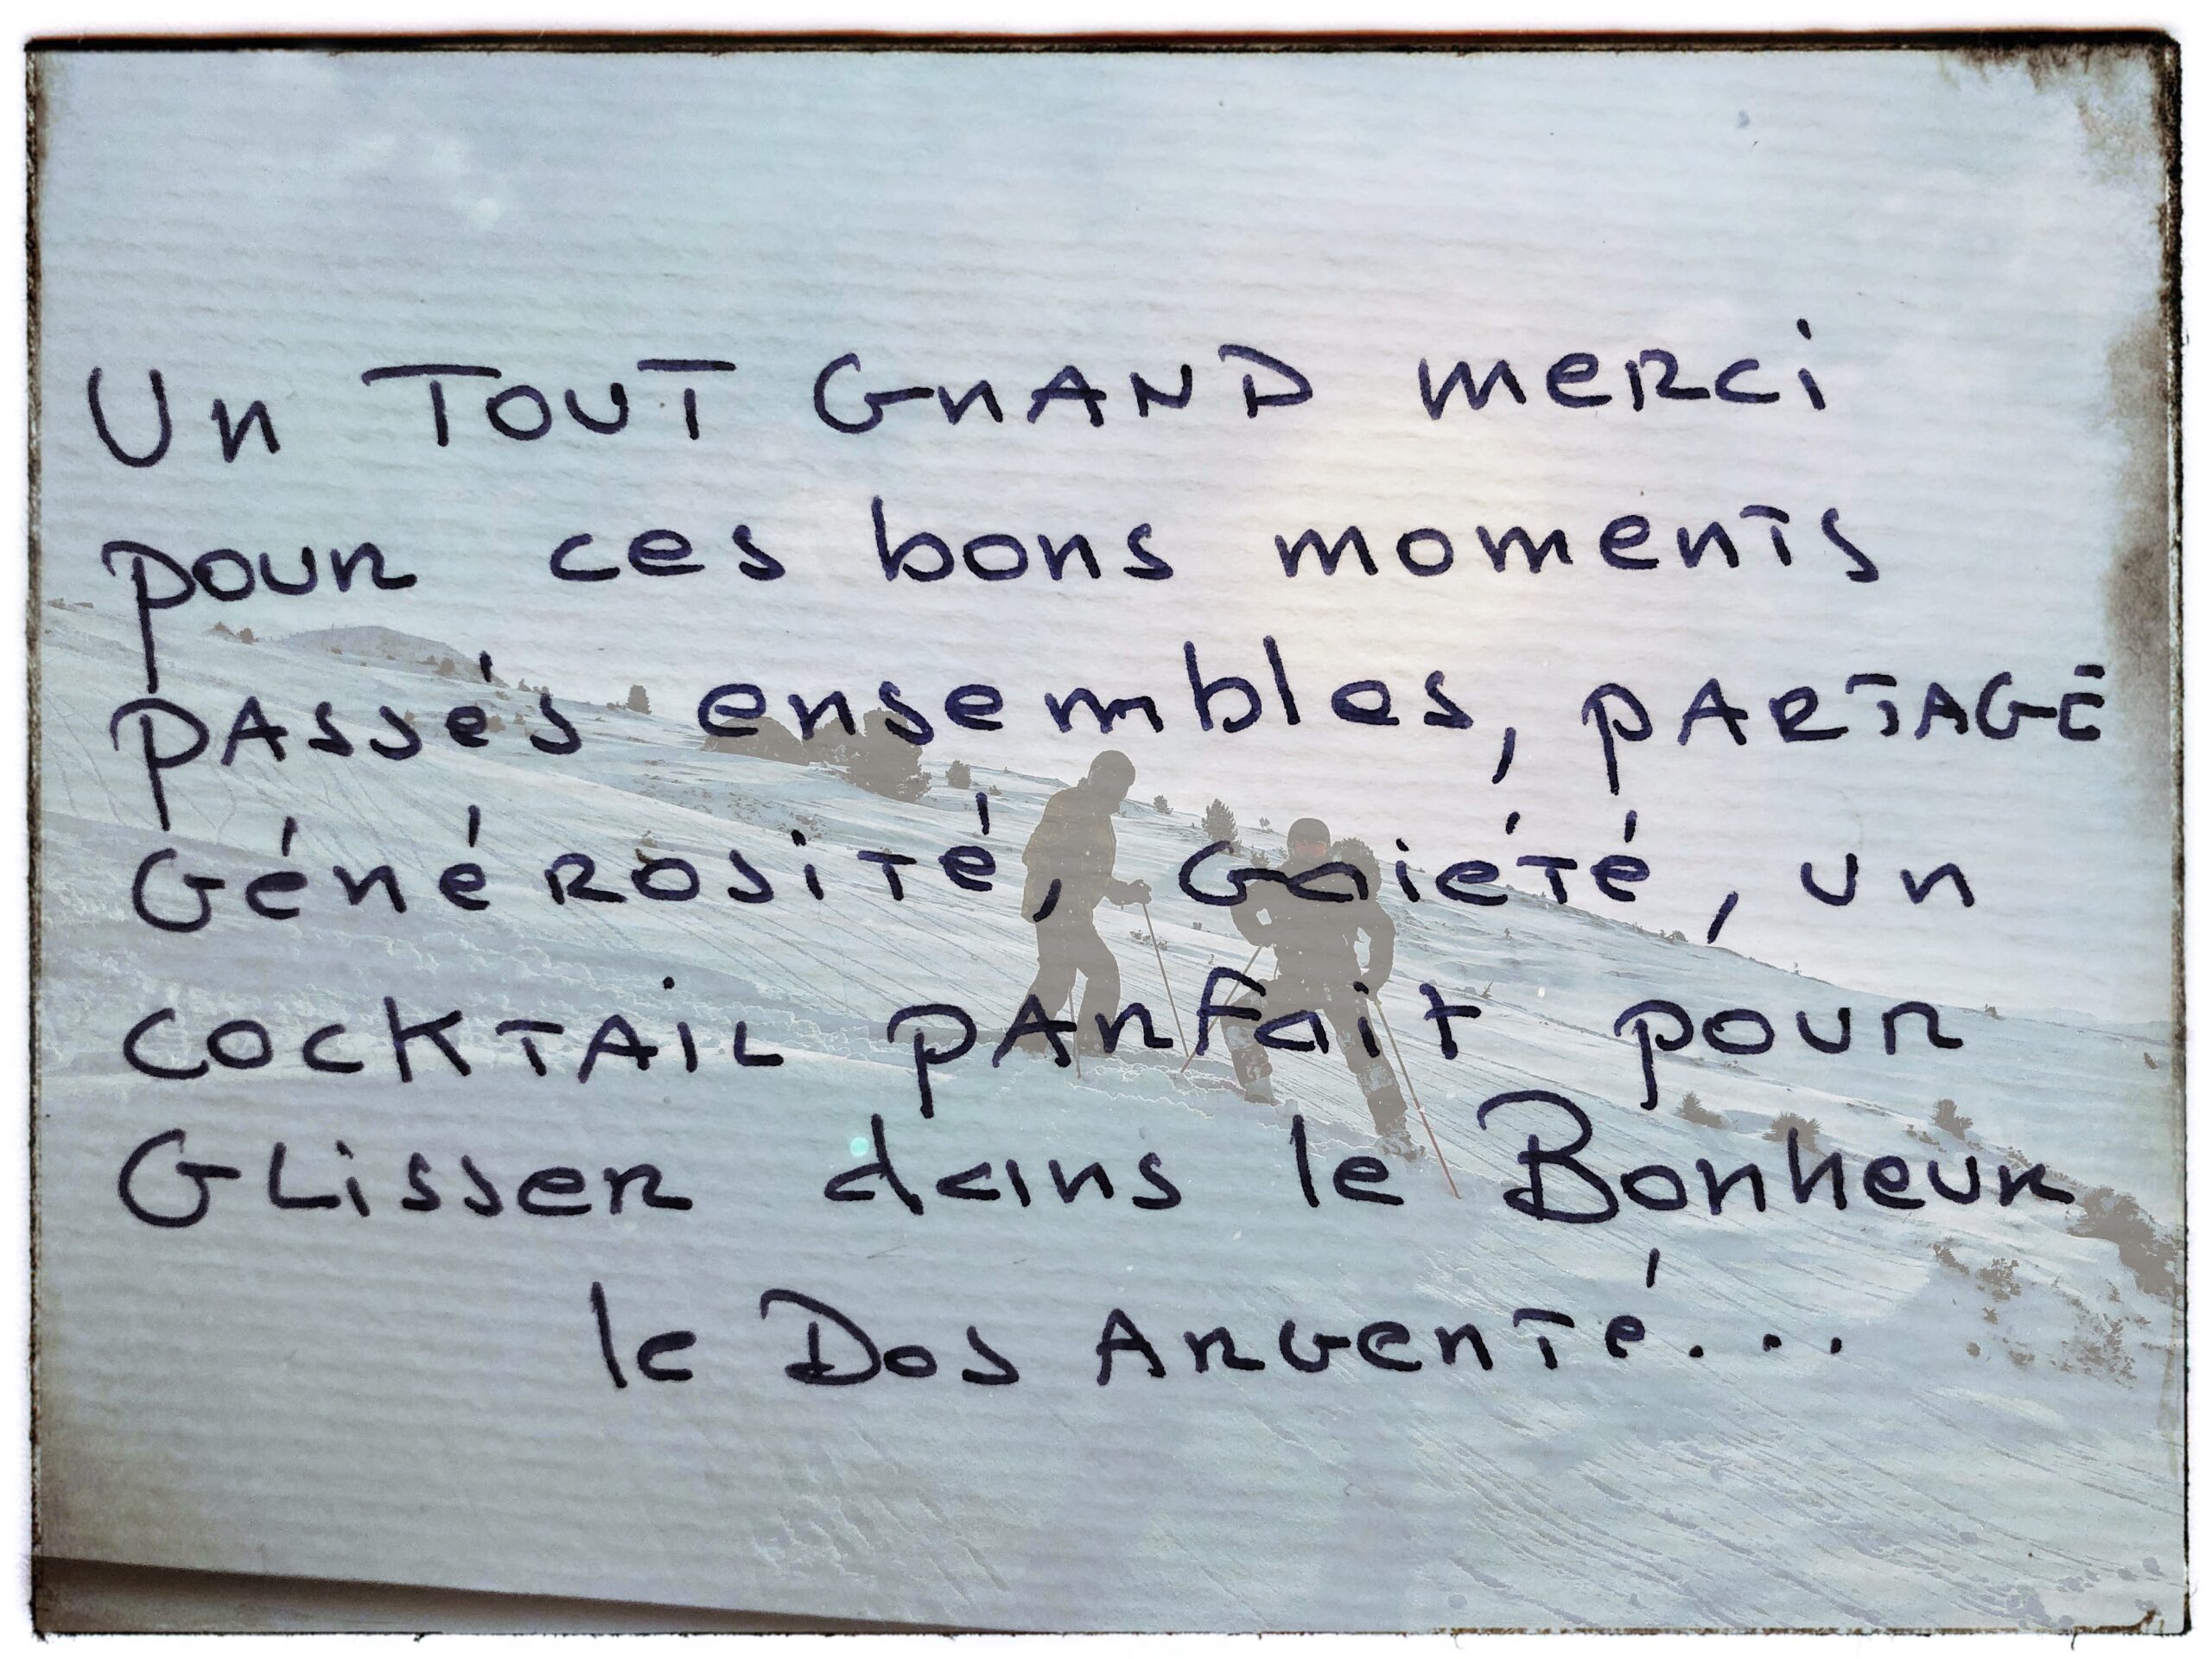 Un TOUT GRAND merci
pour ces bons moments
PASSés ensembles, PARTAGE
Générosité, Gaiété, un
COCKTAIL PARfait pour
GLisser dans le Bonheur
le Dos ARGenTé...